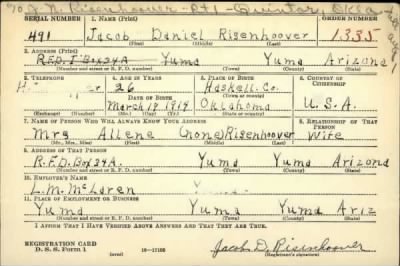 % J. N. Risenhoover - Rt 1 - Quinton, Okla
SERIAL NUMBER 1. NAME (Print) ORDER NUMBER
491 Jacob Daniel Risenhoover 1335
(First) (Middle) (Last)
2. ADDRESS (Print)
R.F.D. 1 Box 24A Yuma Yuma Arizona
(Number and street or R. F. D. number) (Town) (County) (State)
3. TELEPHONE 4. AGE IN YEARS 5. PLACE OF BIRTH 6. COUNTRY OF CITIZENSHIP
26 Haskell Co.
DATE OF BIRTH (Town or county)
March 19, 1914 Oklahoma U.S.A.
(Exchange) (Number) (Mo.) (Day) (Yr.) (State or country)
7. NAME OF PERSON WHO WILL ALWAYS KNOW YOUR ADDRESS 8. RELATIONSHIP OF THAT PERSON
Mrs Allene (none) Risenhoover Wife
(Mr., Mrs., Miss) (First) (Middle) (Last)
9. ADDRESS OF THAT PERSON
R.F.D. Box 24A. Yuma Yuma Arizona
(Number and street or R. F. D. number) (Town) (County) (State)
10. EMPLOYER'S NAME
L.M. McLaren
11. PLACE OF EMPLOYMENT OR BUSINESS
Yuma Yuma Yuma Ariz
(Number and street or R. F. D. number) (Town) (County) (State)
I AFFIRM THAT I HAVE VERIFIED ABOVE ANSWERS AND THAT THEY ARE TRUE.
REGISTRATION CARD
D. S. S. Form 1 (over) 16-17105 Jacob D. Risenhoover
(Registrant's signature)